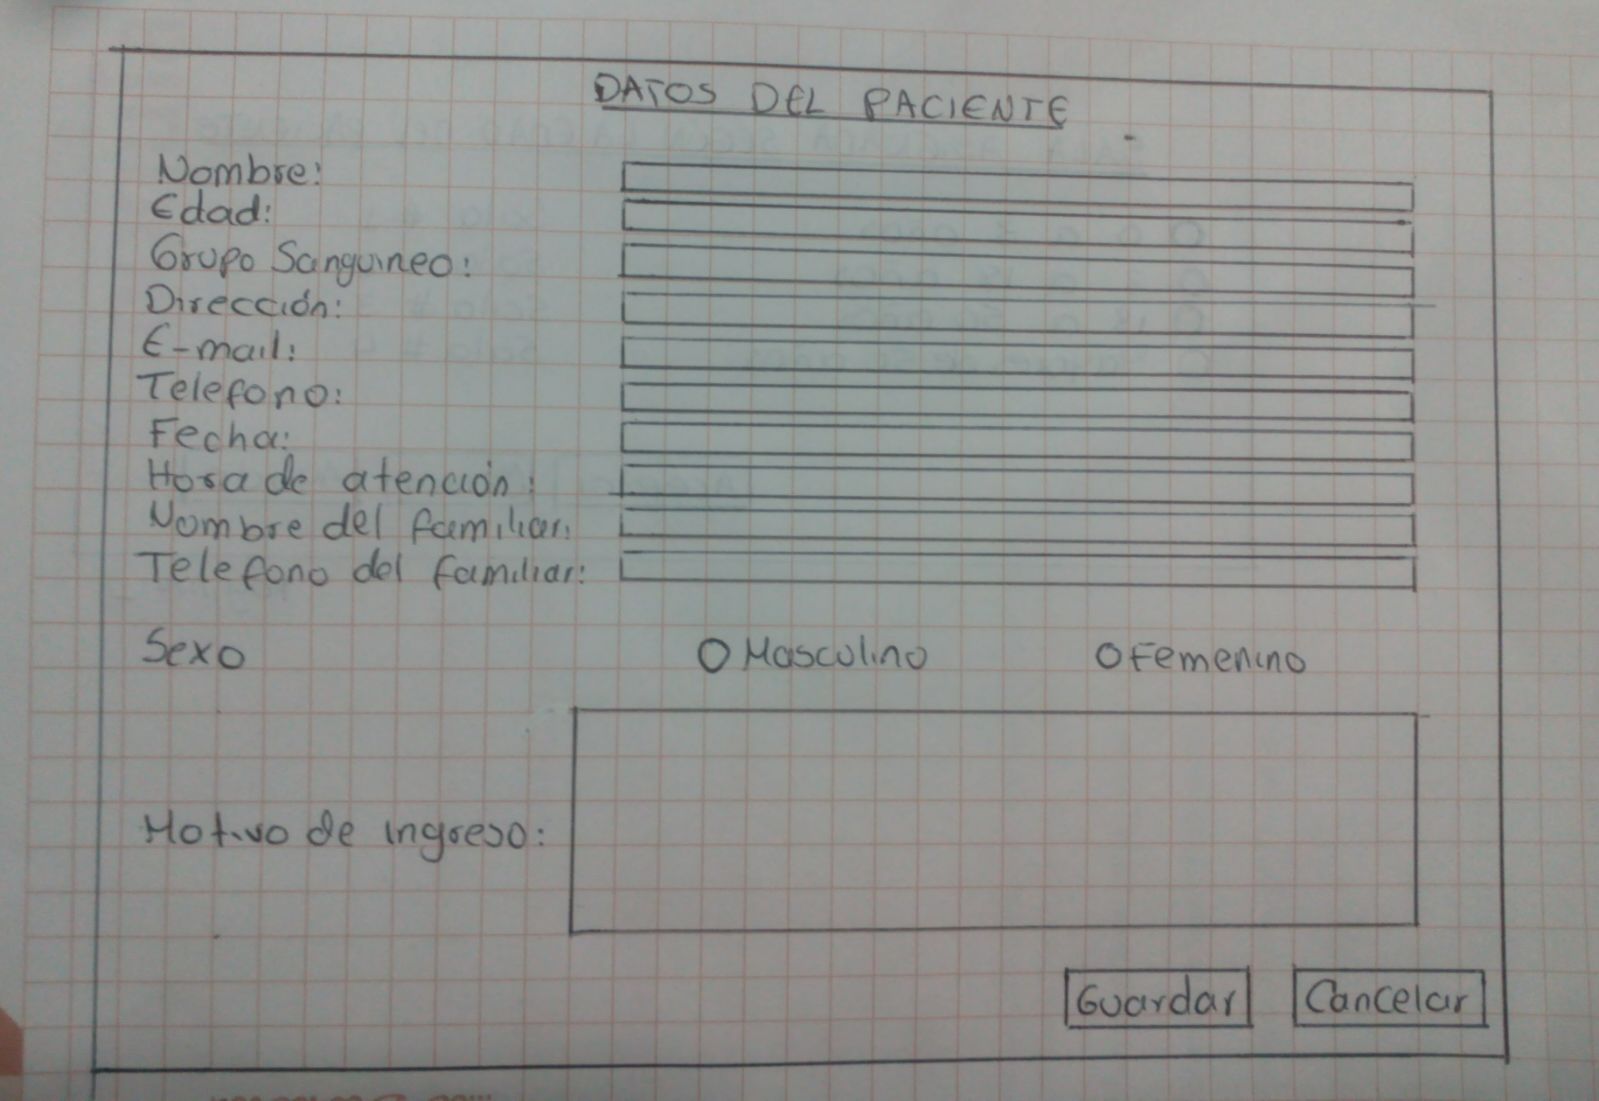 DATOS DEL PACIENTE
Nombre:
Edad:
Grupo Sanguineo:
Dirección:
E-mail:
Telefono:
Fecha:
Hora de atención:
Nombre del familiar:
Telefono del familiar:
Sexo Masculino Femenino
Motivo de ingreso:
Guardar Cancelar